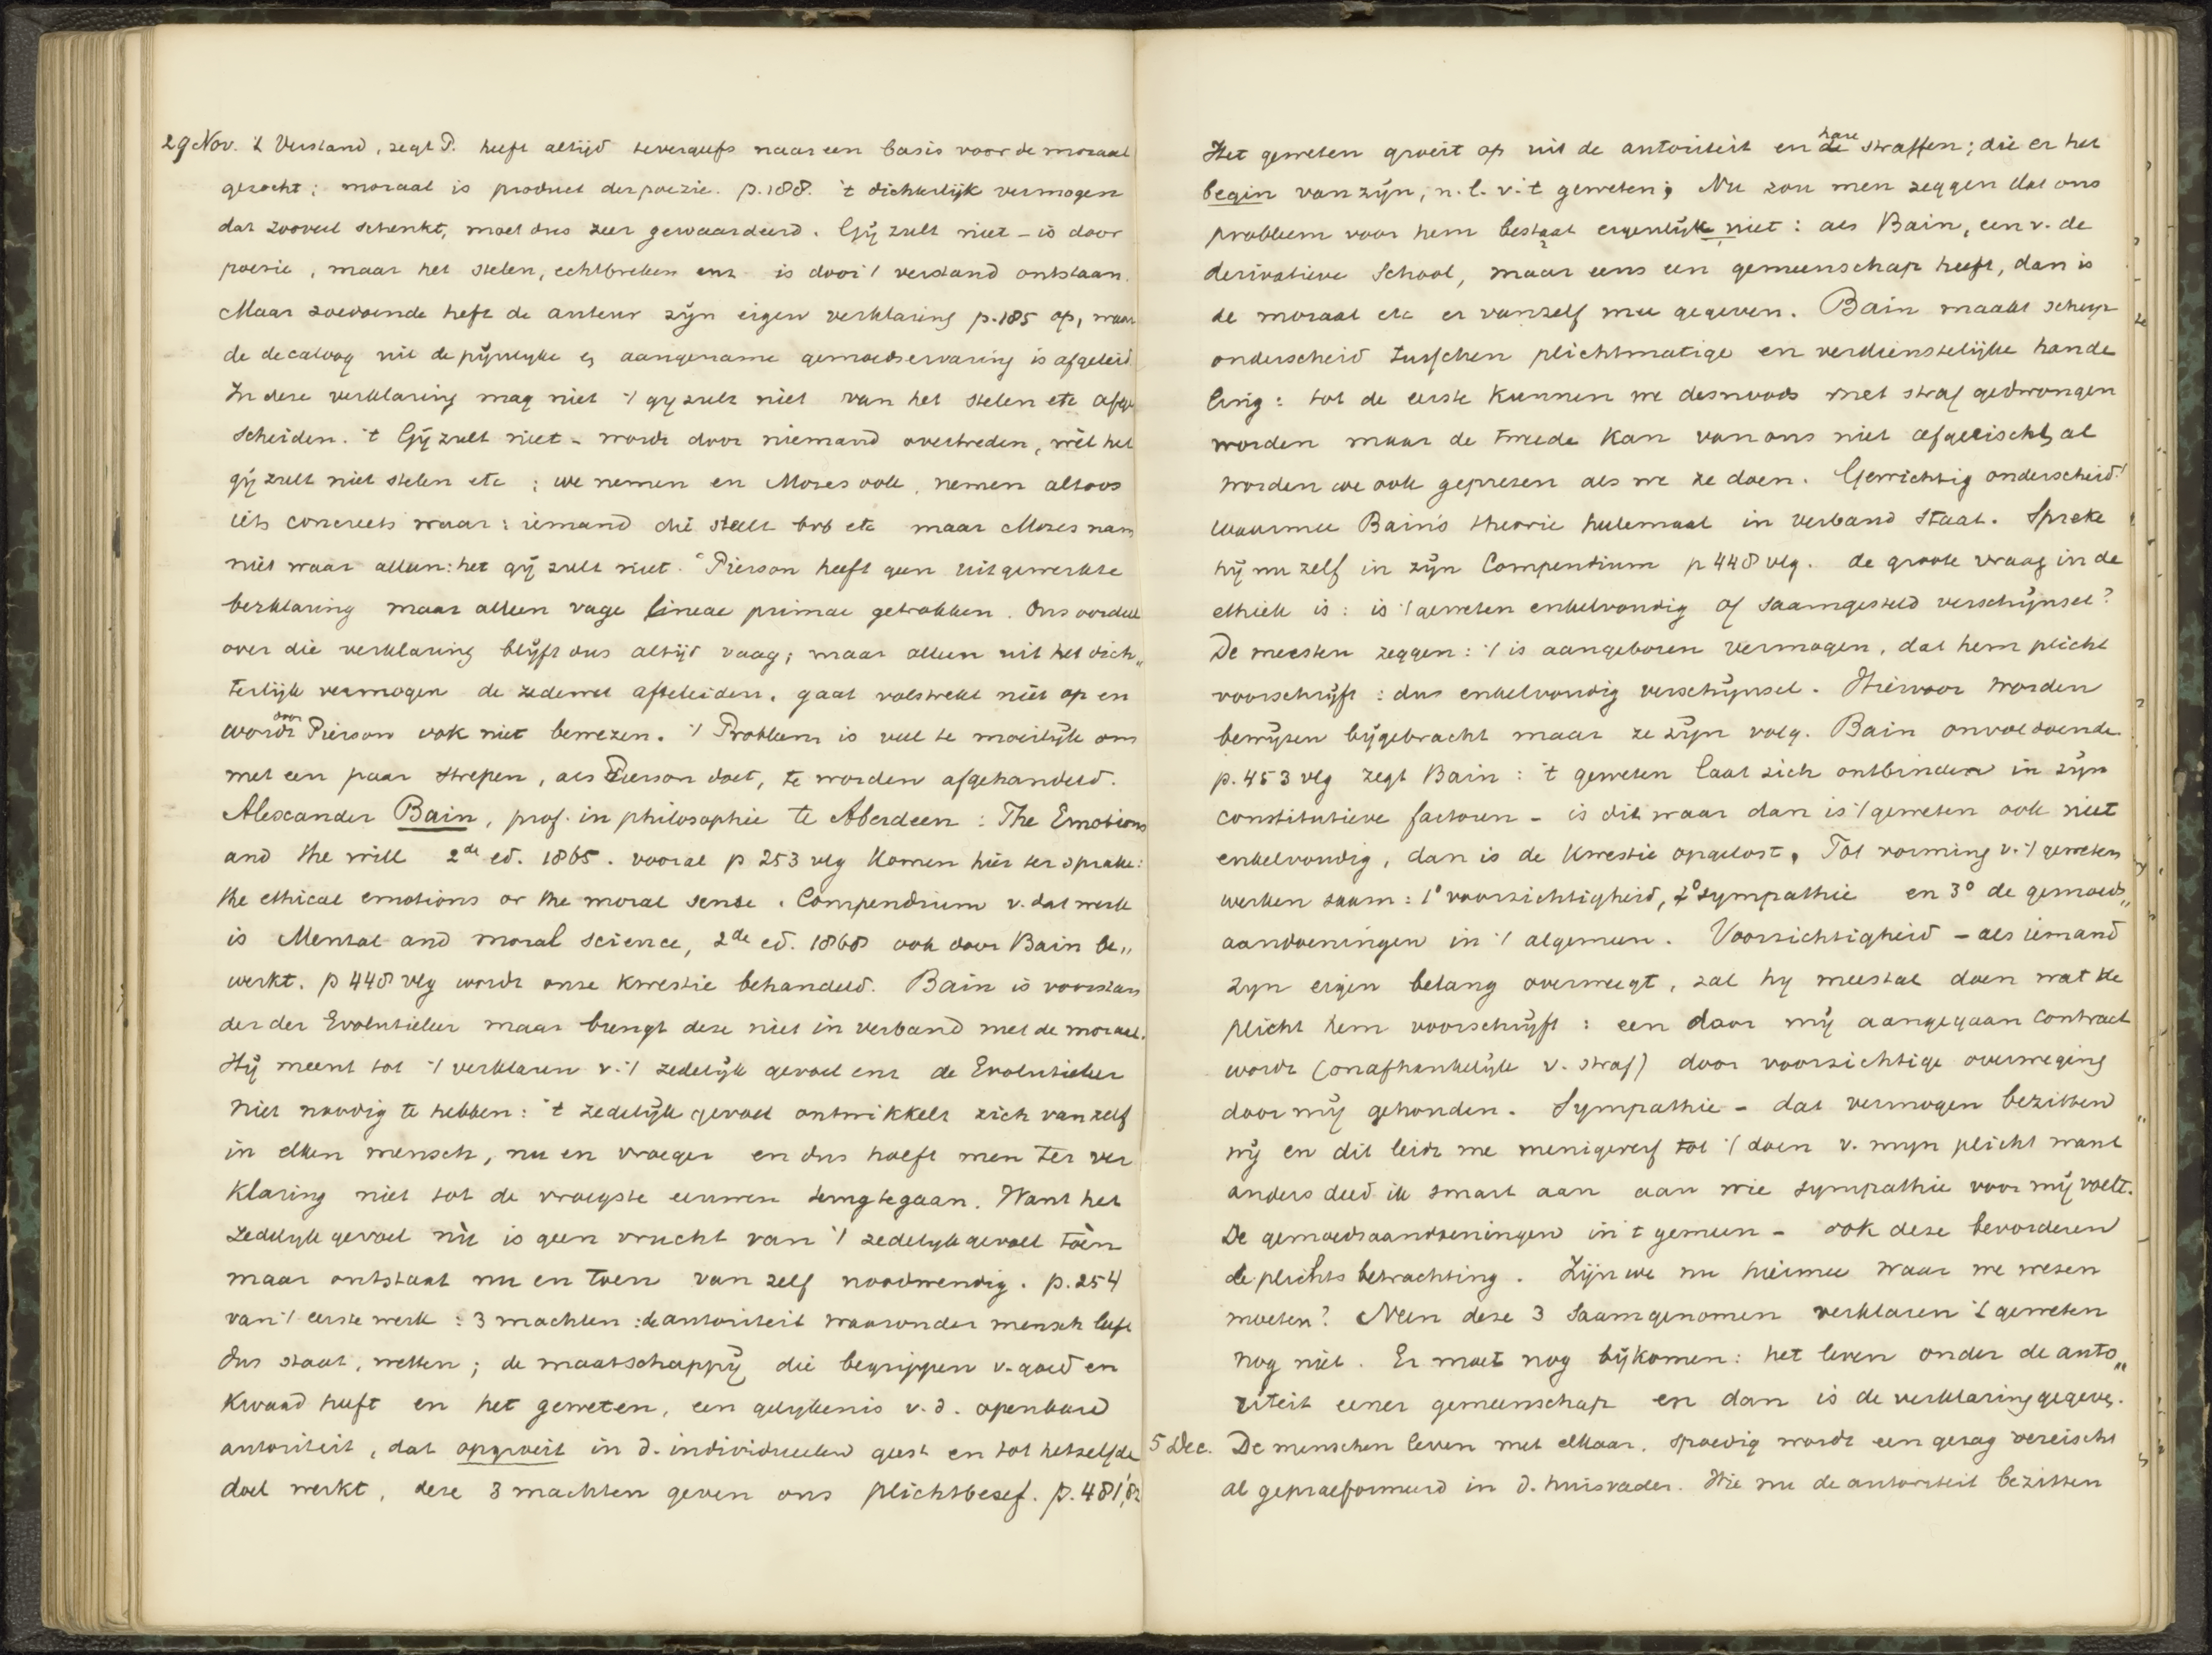 29 Nov. 't Verstand, zegt P. heeft altijd tevergeefs naar een basis voor de moraal
gezocht; moraal is product der poezie. p. 188. 't dichterlijk vermogen
dat zooveel schenkt, moet dus zeer gewaardeerd. Gij zult niet – is door
poezie, maar het stelen, echtbreken enz is door 't verstand ontstaan.
Maar zoodoende heft de auteur zijn eigen verklaring p. 185 op, waar
de decaloog uit de pijnlijke en aangename gemoedservaring is afgeleid.
In deze verklaring mag niet 't gij zult niet van het stelen etc afge
scheiden. 't Gij zult niet – wordt door niemand overtreden, wèl het
gij zult niet stelen etc; we nemen en Mozes ook, nemen altoos
iets concreets waar: iemand die steelt etc maar Mozes nam
niet waar alleen: het gij zult niet. Pierson heeft geen uitgewerkte
verklaring maar alleen vage lineae primae getrokken. Ons oordeel
over die verklaring blijft dus altijd vaag; maar alleen uit het dich„
terlijk vermogen de zedewet afteleiden, gaat volstrekt niet op en
wordt door Pierson ook niet bewezen. 't Probleem is veel te moeilijk om
met een paar strepen, als Pierson doet, te worden afgehandeld.
Alexander Bain, prof. in philosophie te Aberdeen: The Emotions
and the will 2de ed. 1865. vooral p 253 vlg komen hier ter sprake:
the ethical emotions or the moral sense. Compendium v. dat werk
is Mental and moral science, 2de ed. 1868 ook door Bain be„
werkt. p 448 vlg wordt onze kwestie behandeld. Bain is voorstan
der der Evolutieleer maar brengt deze niet in verband met de moraal.
Hij meent tot 't verklaren v. 't zedelijk gevoel enz de Evolutieleer
niet noodig te hebben: 't zedelijk gevoel ontwikkelt zich vanzelf
in elken mensch, nu en vroeger en dus hoeft men ter ver
klaring niet tot de vroegste eeuwen terugtegaan. Want het
zedelijk gevoel nù is geen vrucht van 't zedelijk gevoel tòen
maar ontstaat nu en toen van zelf noodwendig. p. 254
van 't eerste werk: 3 machten: de autoriteit waaronder mensch leeft
dus staat, wetten; de maatschappij die begrippen v. goed en
kwaad heeft en het geweten, een gelijkenis v. d. openbare
autoriteit, dat opgroeit in d. individueelen geest en tot hetzelfde
doel werkt, deze 3 machten geven ons plichtbesef. p. 481, 82
Het geweten groeit op uit de autoriteit en de hare straffen; die er het
begin van zijn, n.l. v. 't geweten; Nu zou men zeggen dat ons
probleem voor hem bestaat eigenlijk niet: als Bain, een v. de
derivatieve School, maar eens een gemeenschap heeft, dan is
de moraal etc er vanzelf mee gegeven. Bain maakt scherp
onderscheid tusschen plichtmatige en verdienstelijke hande
ling: tot de eerste kunnen we desnoods met straf gedwongen
worden maar de tweede kan van ons niet afgeëischt, al
worden we ook geprezen als we ze doen. Gewichtig onderscheid!
waarmee Bain's theorie heelemaal in verband staat. Spreke
hij nu zelf in zijn Compendium p 448 vlg. de groote vraag in de
ethiek is: is 't geweten enkelvoudig of saamgesteld verschijnsel?
De meesten zeggen: 't is aangeboren vermogen, dat hem plicht
voorschrijft: dus enkelvoudig verschijnsel. Hiervoor worden
bewijzen bijgebracht maar ze zijn volg. Bain onvoldoende.
p. 453 vlg zegt Bain: 't geweten laat zich ontbinden in zijn
constitutieve factoren – is dit waar dan is 't geweten ook niet
enkelvoudig, dan is de kwestie opgelost. Tot vorming v. 't geweten
werken saam: 1° voorzichtigheid, 2° sympathie en 3° de gemoeds„
aandoeningen in 't algemeen. Voorzichtigheid – als iemand
zijn eigen belang overweegt, zal hij meestal doen wat de
plicht hem voorschrijft: een door mij aangegaan contract
wordt (onafhankelijk v. straf) door voorzichtige overweging
door mij gehouden. Sympathie – dat vermogen bezitten
wij en dit leidt me menigwerf tot 't doen v. mijn plicht want
anders deed ik smart aan aan wie sympathie voor mij voelt.
De gemoedsaandoeningen in 't gemeen – ook deze bevorderen
de plichtsbetrachting. Zijn we nu hiermee waar we wezen
moeten? Neen deze 3 saamgenomen verklaren 't geweten
nog niet. Er moet nog bijkomen: het leven onder de auto„
riteit eener gemeenschap en dan is de verklaring gegeven.
5 Dec. De menschen leven met elkaar, spoedig wordt een gezag vereischt
al gepraeformeerd in d. huisvader. Wie nu de autoriteit bezitten